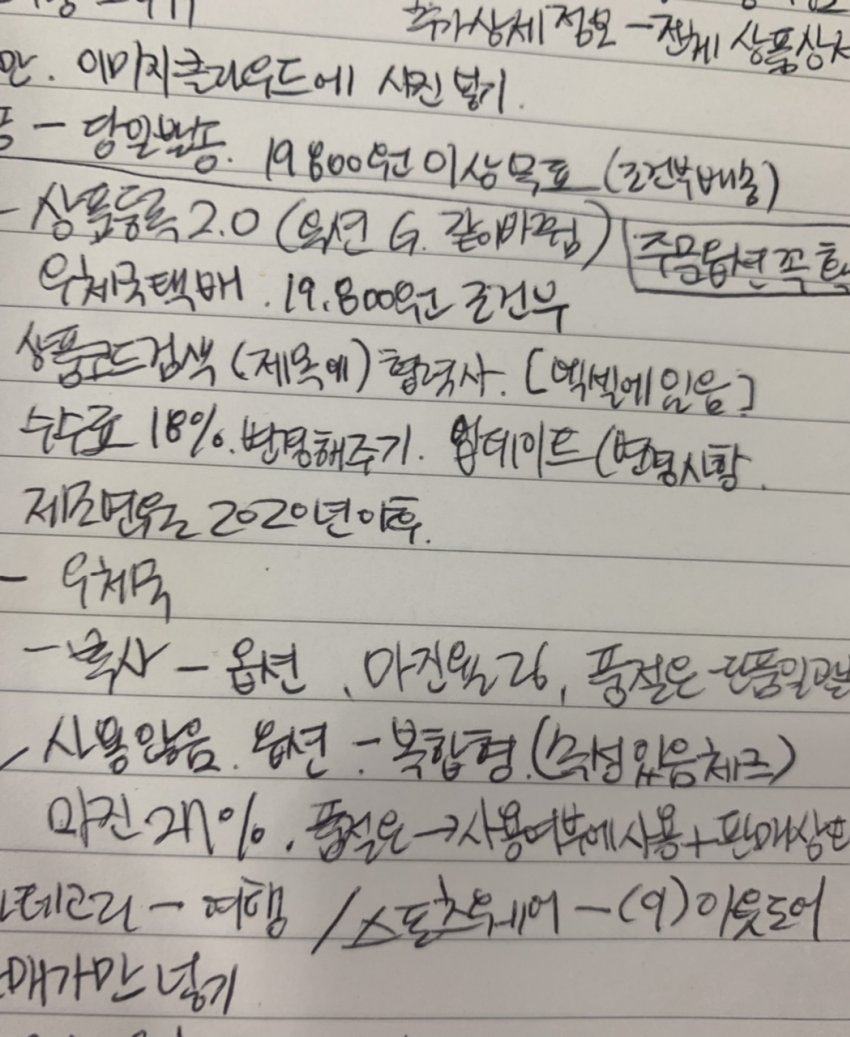 추가상세정보 - 전체 상품상
만. 이미지클라우드에 사진 넣기.
- 당일발송. 19.800원 이상 목표 (조건부배송)
- 상품등록 2.0 (옥션 G. 같이바뀜) 주문옵션 꼭 확
우체국택배. 19.800원 조건부
상품코드검색 (제목에) 협력사. [엑셀에 있음]
수수료 18%. 반영해주기. 업데이트 (변경사항.
제조연월은 2020년이후.
- 우체국
- 복사 - 옵션, 마진율 26, 품절은 -단품일괄
사용않음. 옵션 - 복합형. (속성있음체크)
마진 27%. 품절은 → 사용여부에 사용 + 판매상
테고리 - 여행 / 스포츠웨어 - (여) 아웃도어
매가만 넣기